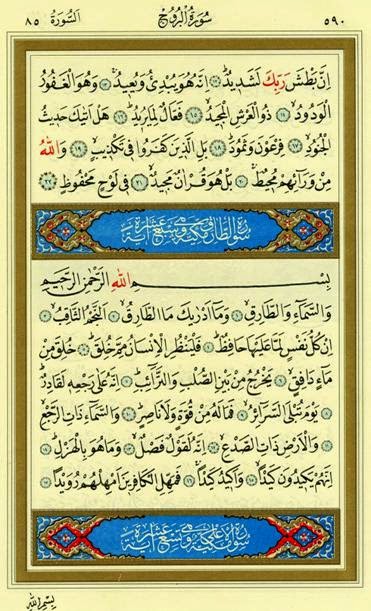 ٥٩٠ سُورَةُ الْبُرُوجِ السُّورَةُ ٨٥
اِنَّ بَطْشَ رَبِّكَ لَشَدٖيدٌ ﴿١٢﴾ اِنَّهُ هُوَ يُبْدِئُ وَيُعٖيدُ ﴿١٣﴾ وَهُوَ الْغَفُورُ
الْوَدُودُ ﴿١٤﴾ ذُو الْعَرْشِ الْمَجٖيدُ ﴿١٥﴾ فَعَّالٌ لِمَا يُرٖيدُ ﴿١٦﴾ هَلْ اَتٰيكَ حَدٖيثُ
الْجُنُودِ ﴿١٧﴾ فِرْعَوْنَ وَثَمُودَ ﴿١٨﴾ بَلِ الَّذٖينَ كَفَرُوا فٖى تَكْذٖيبٍ ﴿١٩﴾ وَاللّٰهُ
مِنْ وَرَائِهِمْ مُحٖيطٌ ﴿٢٠﴾ بَلْ هُوَ قُرْاٰنٌ مَجٖيدٌ ﴿٢١﴾ فٖى لَوْحٍ مَحْفُوظٍ ﴿٢٢﴾
سورة الطارق مكية وهي سبع عشرة آية
بِسْمِ اللّٰهِ الرَّحْمٰنِ الرَّحٖيمِ
وَالسَّمَاءِ وَالطَّارِقِ ﴿١﴾ وَمَا اَدْرٰيكَ مَا الطَّارِقُ ﴿٢﴾ اَلنَّجْمُ الثَّاقِبُ ﴿٣﴾
اِنْ كُلُّ نَفْسٍ لَمَّا عَلَيْهَا حَافِظٌ ﴿٤﴾ فَلْيَنْظُرِ الْاِنْسَانُ مِمَّ خُلِقَ ﴿٥﴾ خُلِقَ مِنْ
مَاءٍ دَافِقٍ ﴿٦﴾ يَخْرُجُ مِنْ بَيْنِ الصُّلْبِ وَالتَّرَائِبِ ﴿٧﴾ اِنَّهُ عَلٰى رَجْعِهٖ لَقَادِرٌ
﴿٨﴾ يَوْمَ تُبْلَى السَّرَائِرُ ﴿٩﴾ فَمَا لَهُ مِنْ قُوَّةٍ وَلَا نَاصِرٍ ﴿١٠﴾ وَالسَّمَاءِ ذَاتِ الرَّجْعِ
﴿١١﴾ وَالْاَرْضِ ذَاتِ الصَّدْعِ ﴿١٢﴾ اِنَّهُ لَقَوْلٌ فَصْلٌ ﴿١٣﴾ وَمَا هُوَ بِالْهَزْلِ ﴿١٤﴾
اِنَّهُمْ يَكٖيدُونَ كَيْدًا ﴿١٥﴾ وَاَكٖيدُ كَيْدًا ﴿١٦﴾ فَمَهِّلِ الْكَافِرٖينَ اَمْهِلْهُمْ رُوَيْدًا ﴿١٧﴾
سورة الاعلى مكية وهي تسع عشرة آية
بِسْمِ اللّٰهِ